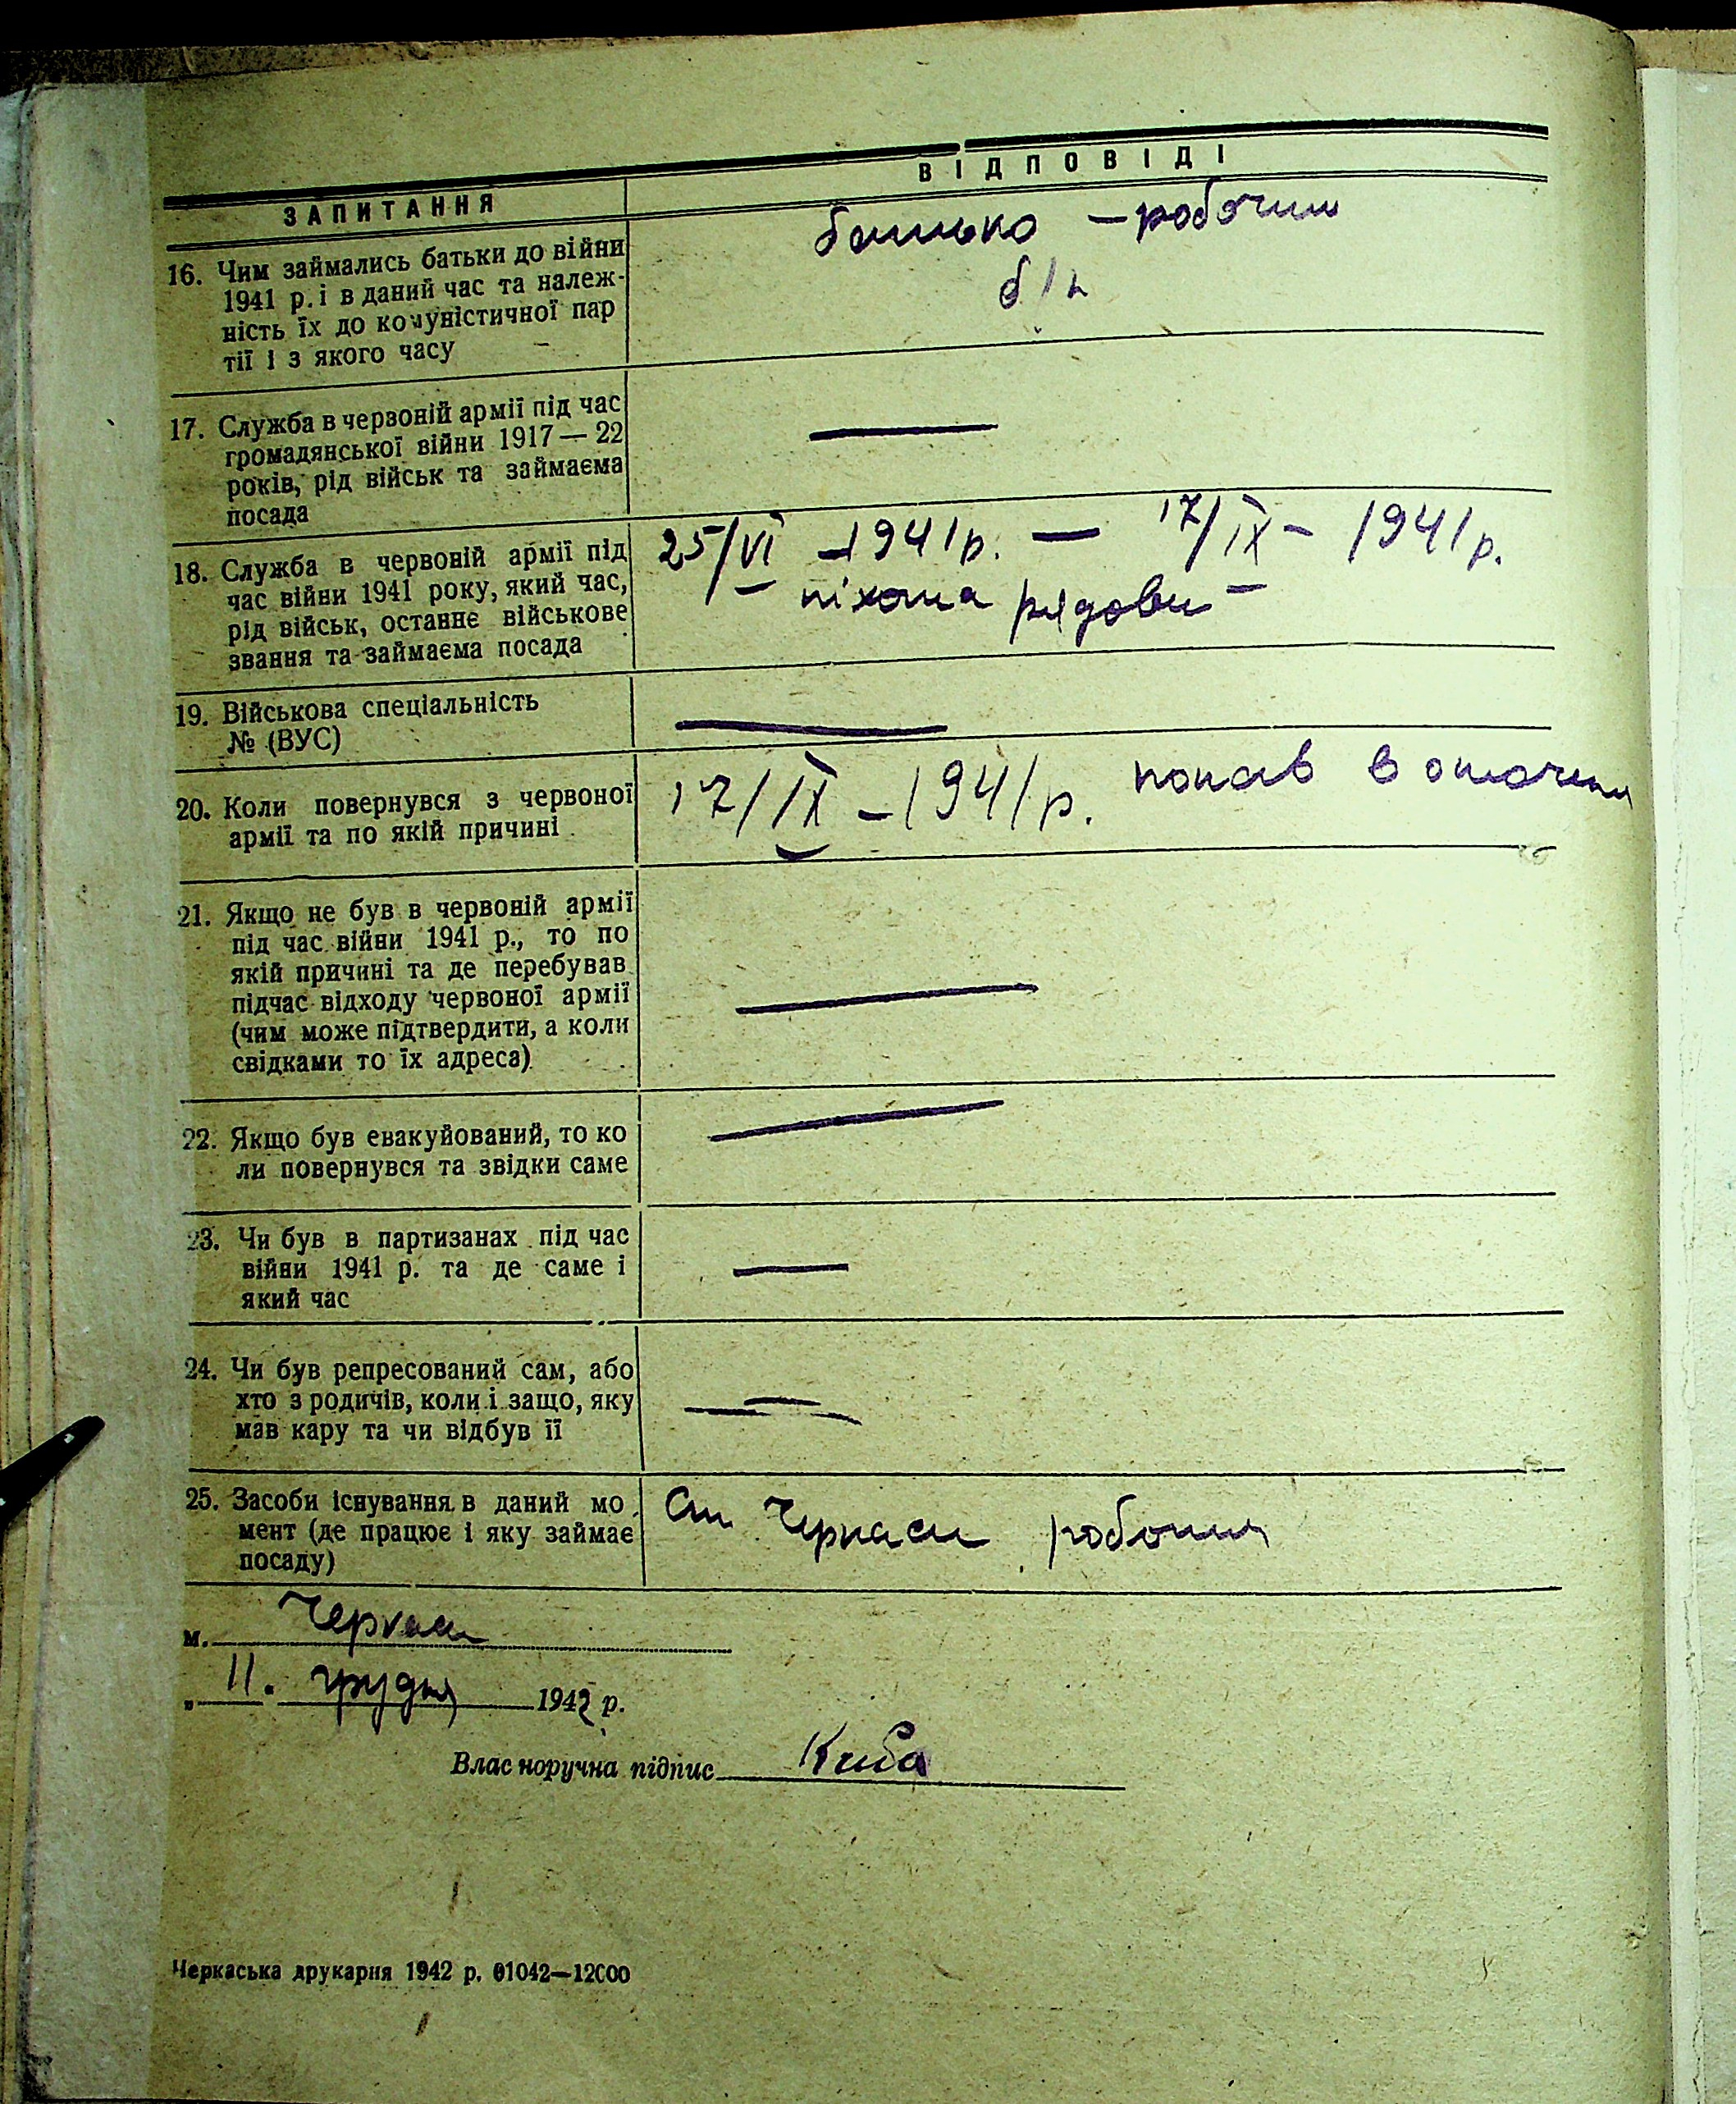 ЗАПИТАННЯ
ВІДПОВІДІ
16. Чим займались батьки до війни
1941 р. і в даний час та належ-
ність їх до комуністичної пар
тії і з якого часу
батько – робочий
б/п
17. Служба в червоній армії під час
громадянської війни 1917 — 22
років, рід військ та займаєма
посада
18. Служба в червоній армії під
час війни 1941 року, який час,
рід військ, останнє військове
звання та займаєма посада
25/VI – 1941 р. — 17/IX – 1941 р.
– піхота рядови –
19. Військова спеціальність
№ (ВУС)
20. Коли повернувся з червоної
армії та по якій причині
17/IX – 1941 р. попав в оточення
21. Якщо не був в червоній армії
під час війни 1941 р., то по
якій причині та де перебував
підчас відходу червоної армії
(чим може підтвердити, а коли
свідками то їх адреса)
22. Якщо був евакуйований, то ко
ли повернувся та звідки саме
23. Чи був в партизанах під час
війни 1941 р. та де саме і
який час
24. Чи був репресований сам, або
хто з родичів, коли і защо, яку
мав кару та чи відбув її
25. Засоби існування в даний мо
мент (де працює і яку займає
посаду)
Ст. Черкаси робочий
м. Черкаси
„ 11. грудня 1942 р.
Власноручна підпис Киба
Черкаська друкарня 1942 р. 01042—12000